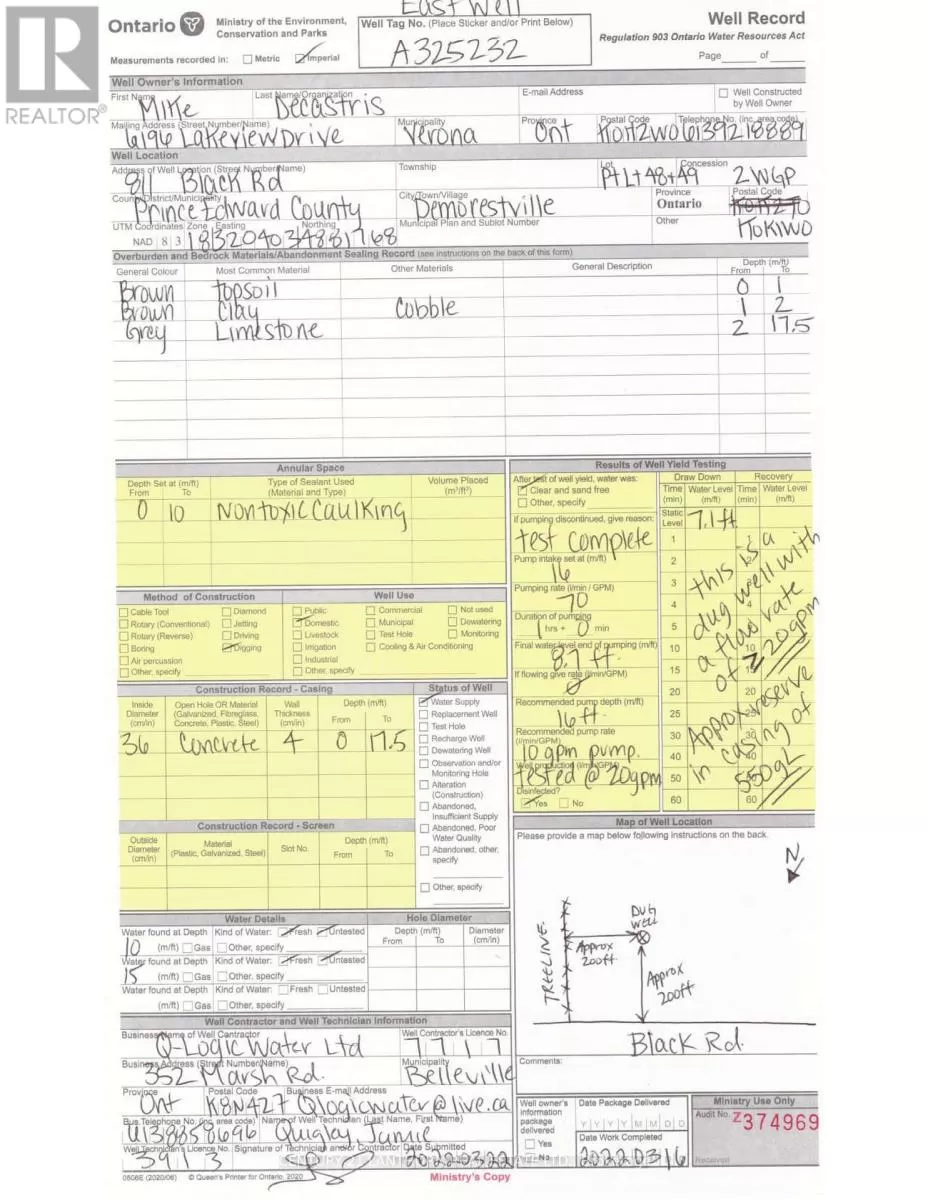 East Well
Ontario
Ministry of the Environment,
Conservation and Parks
Well Tag No. (Place Sticker and/or Print Below)
A325232
Well Record
Regulation 903 Ontario Water Resources Act
Measurements recorded in: Metric Imperial
Page of
REALTOR®
Well Owner's Information
First Name Last Name/Organization E-mail Address Well Constructed by Well Owner
Mike Decastris
Mailing Address (Street Number/Name) Municipality Province Postal Code Telephone No. (inc. area code)
6196 Lakeview Drive Verona Ont K0H2W0 6139218889
Well Location
Address of Well Location (Street Number/Name) Township Lot Concession
811 Black Rd Pt Lt 48+49 2WGP
County/District/Municipality City/Town/Village Province Postal Code
Prince Edward County Demorestville Ontario
UTM Coordinates Zone Easting Northing Municipal Plan and Sublot Number Other
K0K1W0
NAD 8 3 183204034881768
Overburden and Bedrock Materials/Abandonment Sealing Record (see instructions on the back of this form)
General Colour Most Common Material Other Materials General Description Depth (m/ft) From To
Brown topsoil 0 1
Brown Clay Cobble 1 2
Grey Limestone 2 17.5
Annular Space
Depth Set at (m/ft) From To Type of Sealant Used (Material and Type) Volume Placed (m³/ft³)
0 10 Nontoxic Caulking
Method of Construction
Cable Tool Diamond
Rotary (Conventional) Jetting
Rotary (Reverse) Driving
Boring Digging
Air percussion
Other, specify
Well Use
Public Commercial Not used
Domestic Municipal Dewatering
Livestock Test Hole Monitoring
Irrigation Cooling & Air Conditioning
Industrial
Other, specify
Construction Record - Casing
Inside Diameter (cm/in) Open Hole OR Material (Galvanized, Fibreglass, Concrete, Plastic, Steel) Wall Thickness (cm/in) Depth (m/ft) From To
36 Concrete 4 0 17.5
Status of Well
Water Supply
Replacement Well
Test Hole
Recharge Well
Dewatering Well
Observation and/or Monitoring Hole
Alteration (Construction)
Abandoned, Insufficient Supply
Abandoned, Poor Water Quality
Abandoned, other, specify
Other, specify
Construction Record - Screen
Outside Diameter (cm/in) Material (Plastic, Galvanized, Steel) Slot No. Depth (m/ft) From To
Water Details
Water found at Depth Kind of Water: Fresh Untested
10 (m/ft) Gas Other, specify
Water found at Depth Kind of Water: Fresh Untested
15 (m/ft) Gas Other, specify
Water found at Depth Kind of Water: Fresh Untested
(m/ft) Gas Other, specify
Hole Diameter
Depth (m/ft) From To Diameter (cm/in)
Results of Well Yield Testing
After test of well yield, water was:
Clear and sand free
Other, specify
If pumping discontinued, give reason:
test complete
Pump intake set at (m/ft)
16
Pumping rate (l/min / GPM)
70
Duration of pumping
1 hrs + 0 min
Final water level end of pumping (m/ft)
8.7 ft.
If flowing give rate (l/min/GPM)
0
Recommended pump depth (m/ft)
16 ft.
Recommended pump rate (l/min/GPM)
10 gpm pump.
Well production (l/min/GPM)
tested @ 20gpm
Disinfected?
Yes No
Draw Down Recovery
Time (min) Water Level (m/ft) Time (min) Water Level (m/ft)
Static Level 7.1ft
1 1
2 2
3
4 4
5
10 10
15 15
20 20
25
30 30
40 40
50
60 60
this is a
dug well with
a flow rate
of 20gpm
Approx reserve
in casing of
550gL
Map of Well Location
Please provide a map below following instructions on the back.
N
TREELINE
Dug
well
Approx
200ft
Approx
200ft
Black Rd.
Well Contractor and Well Technician Information
Business Name of Well Contractor Well Contractor's Licence No.
Q-Logic Water Ltd 7717
Business Address (Street Number/Name) Municipality
352 Marsh Rd. Belleville
Province Postal Code Business E-mail Address
Ont K8N4Z7 Qlogicwater@live.ca
Bus. Telephone No. (inc. area code) Name of Well Technician (Last Name, First Name)
6138858696 Quigley, Jamie
Well Technician's Licence No. Signature of Technician and/or Contractor Date Submitted
3913 20220322
Comments:
Well owner's information package delivered
Yes
No
Date Package Delivered
Y Y Y Y M M D D
Date Work Completed
20220316
Ministry Use Only
Audit No. Z374969
Received
0506E (2020/06) © Queen's Printer for Ontario, 2020
Ministry's Copy